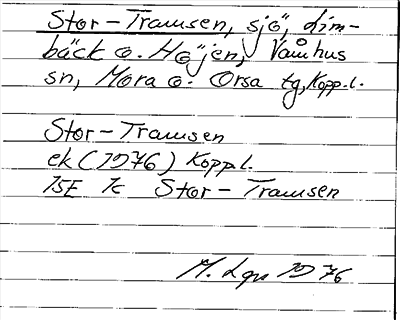 Stor-Tramsen, sjö, Lim-
bäck o. Höjen, Våmhus
sn, Mora o. Orsa tg, Kopp.l.
Stor-Tramsen
ek (1976) Kopp.l.
15E 7c Stor-Tramsen
M. Lgn 1976